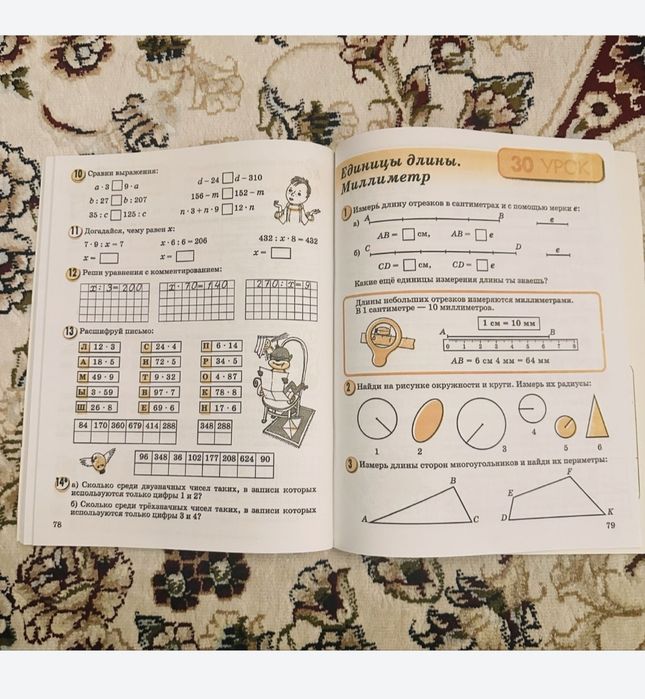 10 Сравни выражения:
a · 3 □ 9 · a d – 24 □ d – 310
b : 27 □ b : 207 156 – m □ 152 – m
35 : c □ 125 : c n · 3 + n · 9 □ 12 · n
11 Догадайся, чему равен x:
7 · 9 : x = 7 x · 6 : 6 = 206 432 : x · 8 = 432
x = □ x = □ x = □
12 Реши уравнения с комментированием:
x : 3 = 200 x · 70 = 140 270 : x = 9
13 Расшифруй письмо:
Л 12 · 3 С 24 · 4 П 6 · 14
А 18 · 5 И 72 · 5 Р 34 · 5
М 49 · 9 Т 9 · 32 О 4 · 87
Ы 3 · 59 В 97 · 7 К 78 · 8
Ш 26 · 8 Е 69 · 6 Н 17 · 6
84 170 360 679 414 288 348 288
96 348 36 102 177 208 624 90
14* а) Сколько среди двузначных чисел таких, в записи которых
используются только цифры 1 и 2?
б) Сколько среди трёхзначных чисел таких, в записи которых
используются только цифры 3 и 4?
78
Единицы длины.
Миллиметр
30 УРОК
1 Измерь длину отрезков в сантиметрах и с помощью мерки e:
а) A B e
AB = □ см, AB = □ e
б) C D e
CD = □ см, CD = □ e
Какие ещё единицы измерения длины ты знаешь?
Длины небольших отрезков измеряются миллиметрами.
В 1 сантиметре — 10 миллиметров.
1 см = 10 мм
A B
0 1 2 3 4 5 6 7 8
AB = 6 см 4 мм = 64 мм
2 Найди на рисунке окружности и круги. Измерь их радиусы:
1 2 3 4 5 6
3 Измерь длины сторон многоугольников и найди их периметры:
A B C
D E F K
79